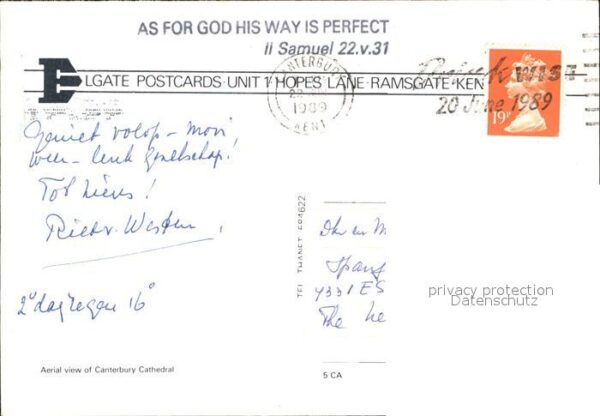 AS FOR GOD HIS WAY IS PERFECT
II Samuel 22.v.31
ELGATE POSTCARDS · UNIT 1 HOPES LANE · RAMSGATE · KEN
CANTERBURY
1989
KENT
20 June 1989
19P
Geniet volop – mooi
weer – leuk gezelschap!
Tot ziens!
2e dag regen 16°
TEL THANET 594622
4331 ES
The Ne
privacy protection
Datenschutz
Aerial view of Canterbury Cathedral
5 CA